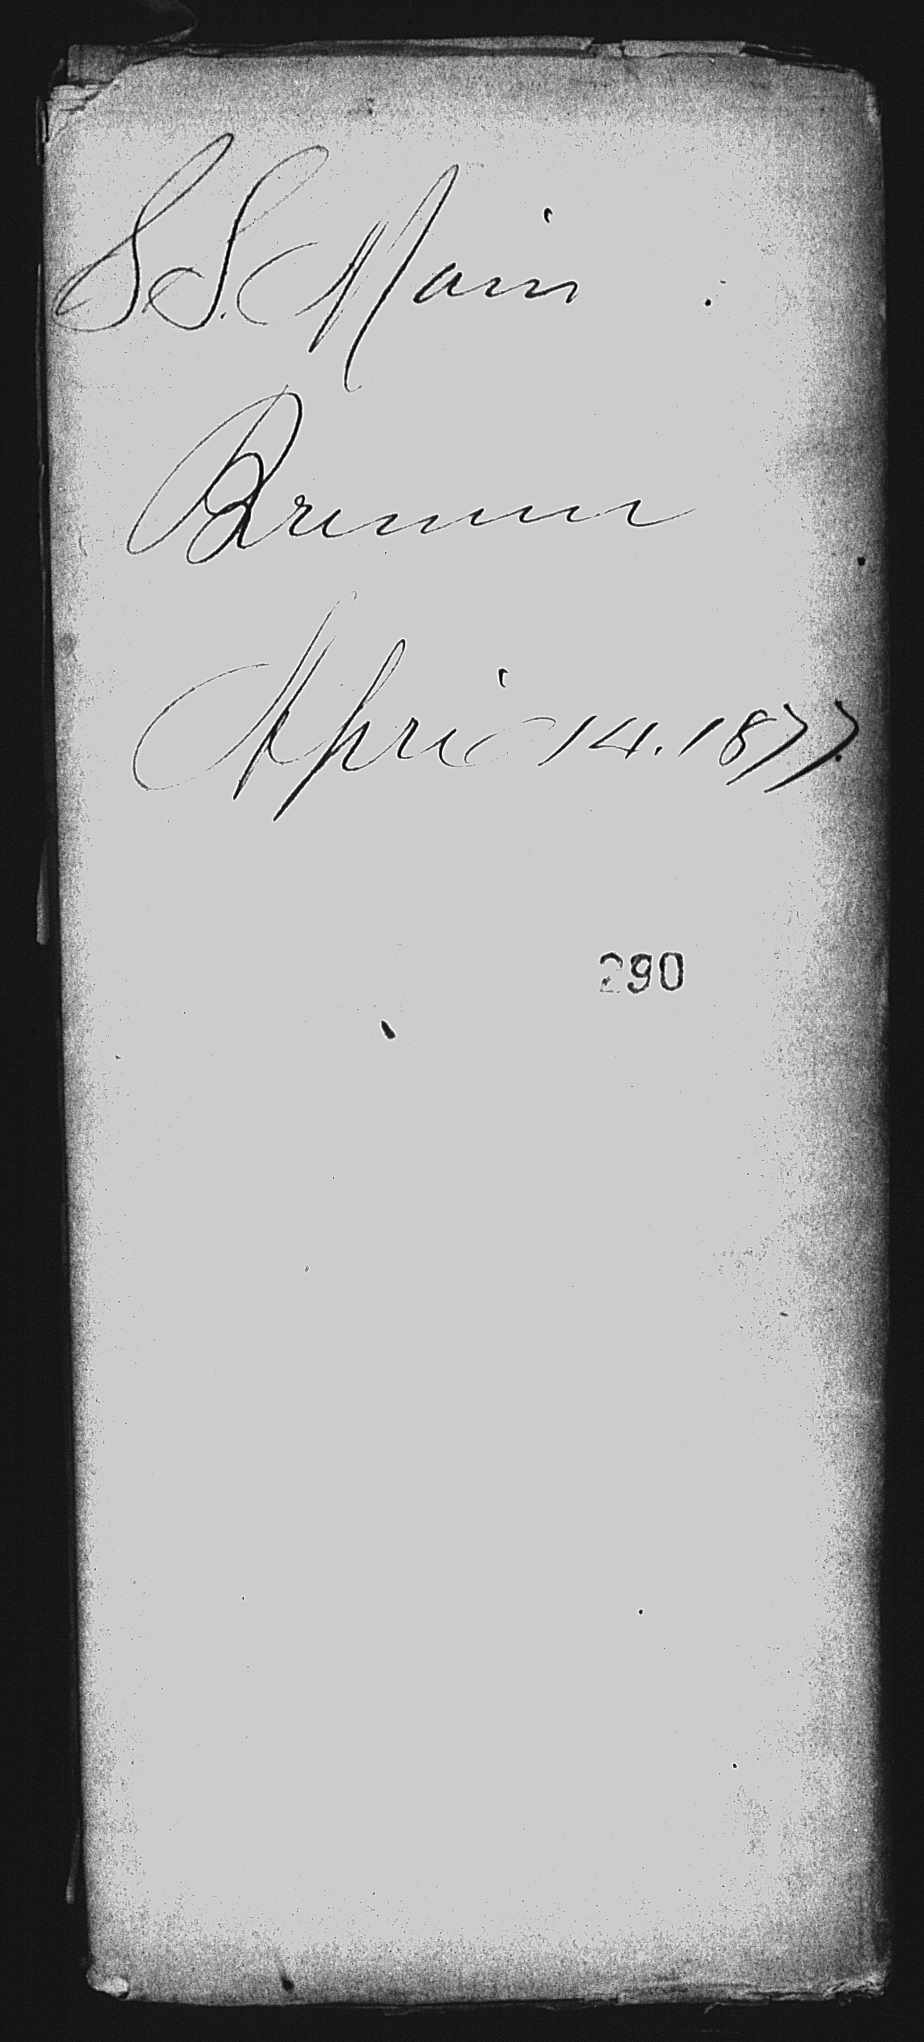 S.S. Main
Bremen
April 14. 1877.
290